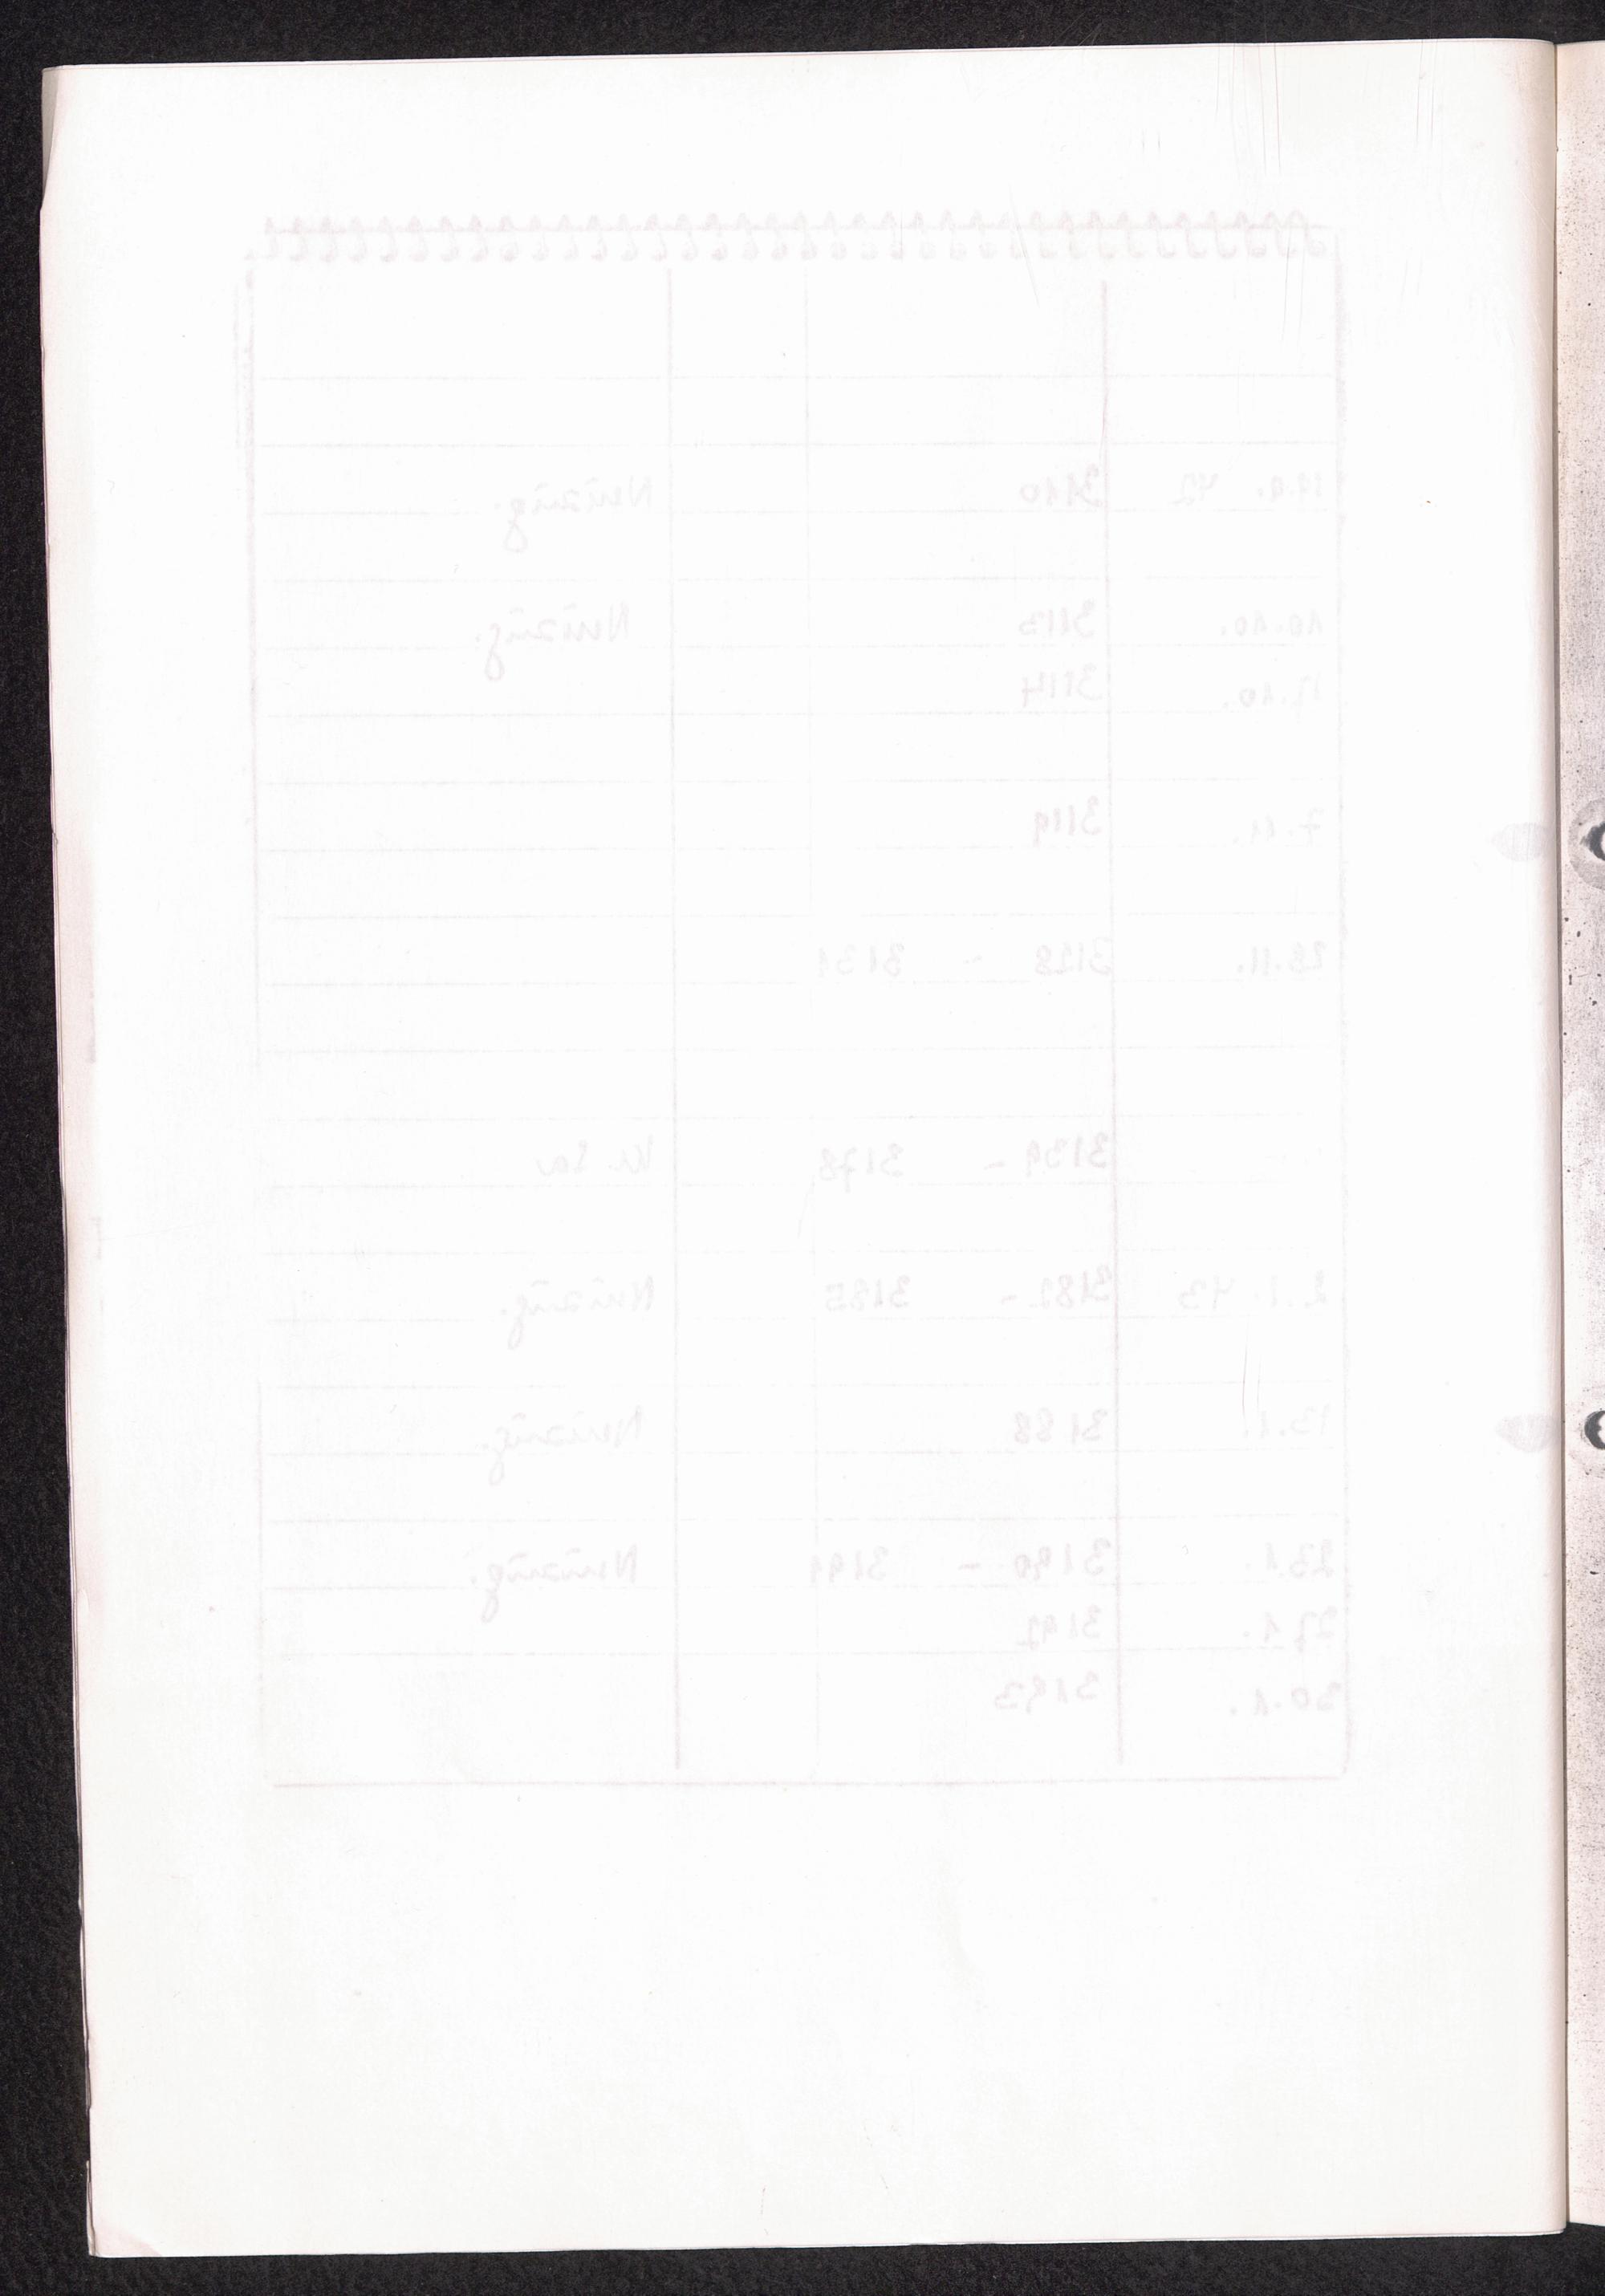 19.9. 42 3110 Neuzüg.
10.10. 3113 Neuzüg.
17.10. 3114
7.11. 3119
28.11. 3128 - 3131
3139 - 3178
2.1.43 3182 - 3185 Neuzüg.
13.1. 3188 Neuzüg.
23.1. 3190 - 3191 Neuzüg.
27.1. 3192
30.1. 3193